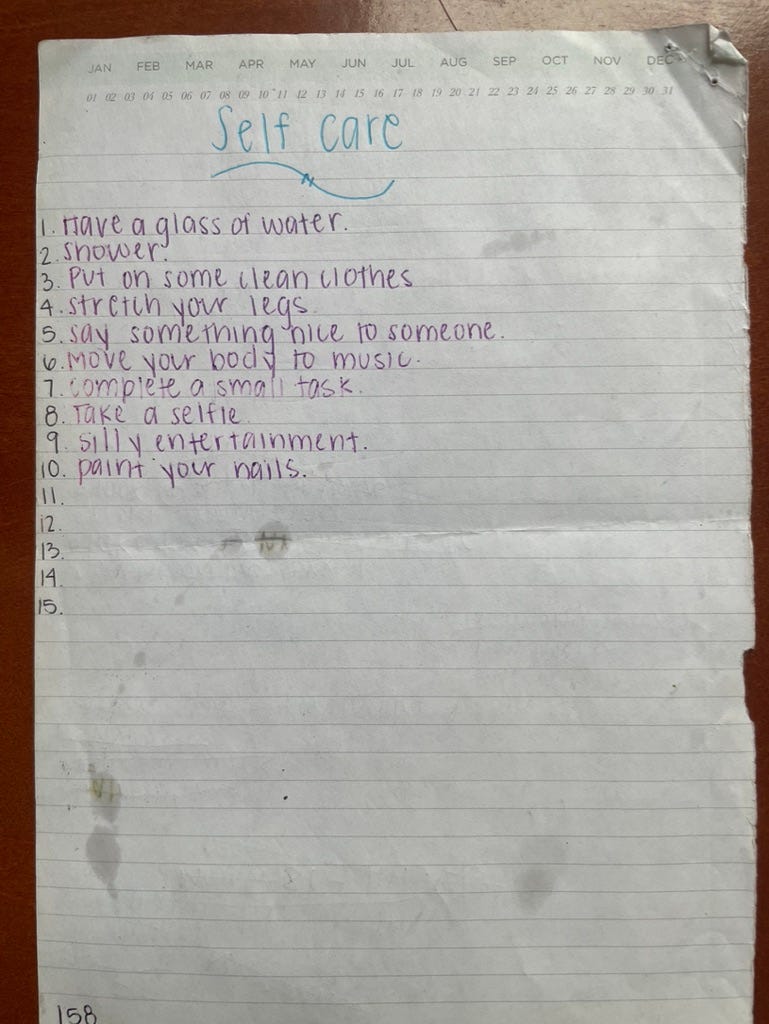 JAN FEB MAR APR MAY JUN JUL AUG SEP OCT NOV DEC
01 02 03 04 05 06 07 08 09 10 11 12 13 14 15 16 17 18 19 20 21 22 23 24 25 26 27 28 29 30 31
Self care
1. Have a glass of water.
2. shower.
3. Put on some clean clothes
4. stretch your legs.
5. say something nice to someone.
6. Move your body to music.
7. complete a small task.
8. Take a selfie.
9. silly entertainment.
10. paint your nails.
11.
12.
13.
14.
15.
158